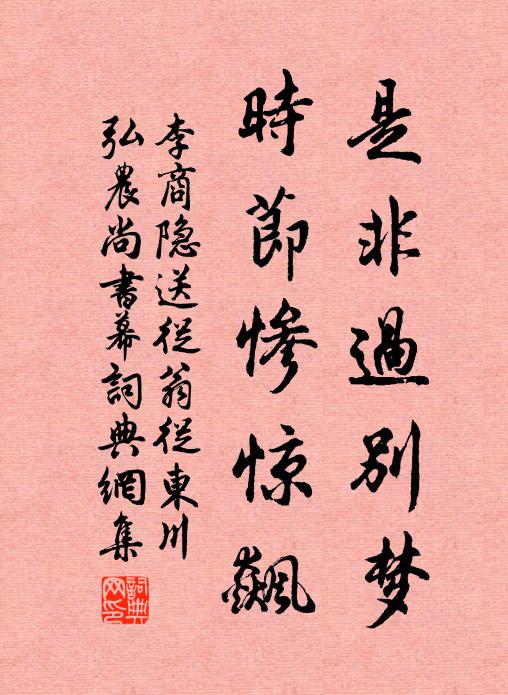 是非過別梦
時節慘惊飆
李商隐送從翁從東川
弘農尚書幕詞典網集